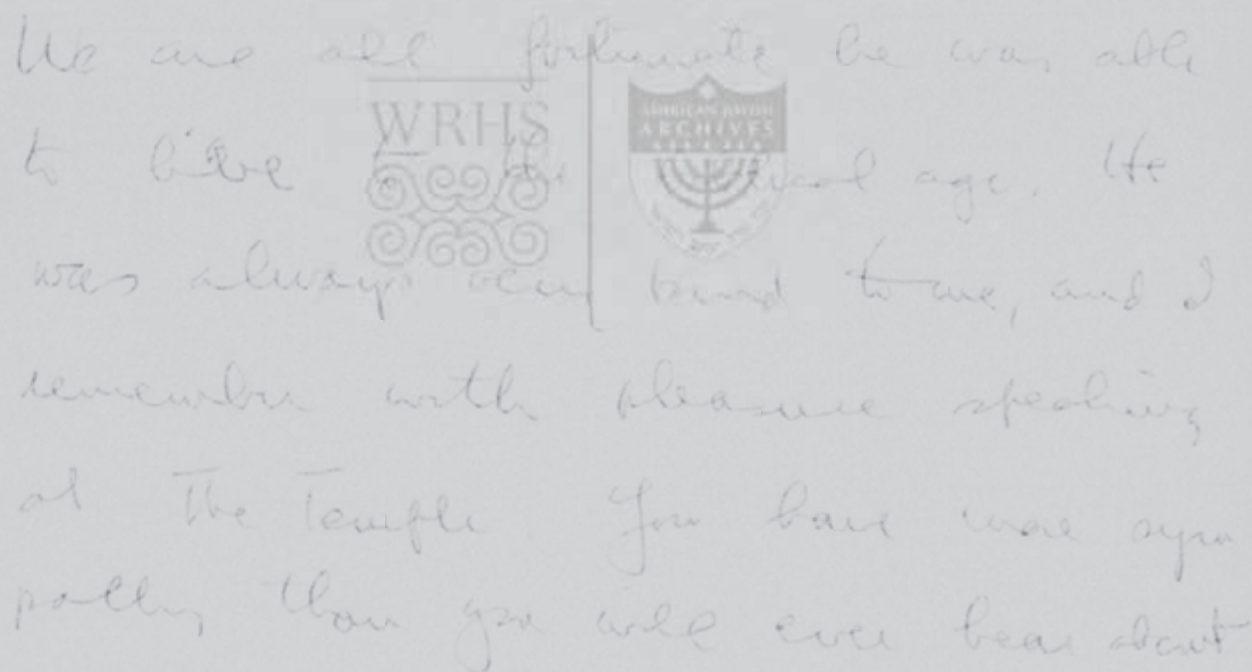 We are all fortunate he was able
to live to the age. He
was always very kind to me, and I
remember with pleasure speaking
at The Temple. You have more sym
pathy than you will ever hear about
WRHS
AMERICAN JEWISH
ARCHIVES